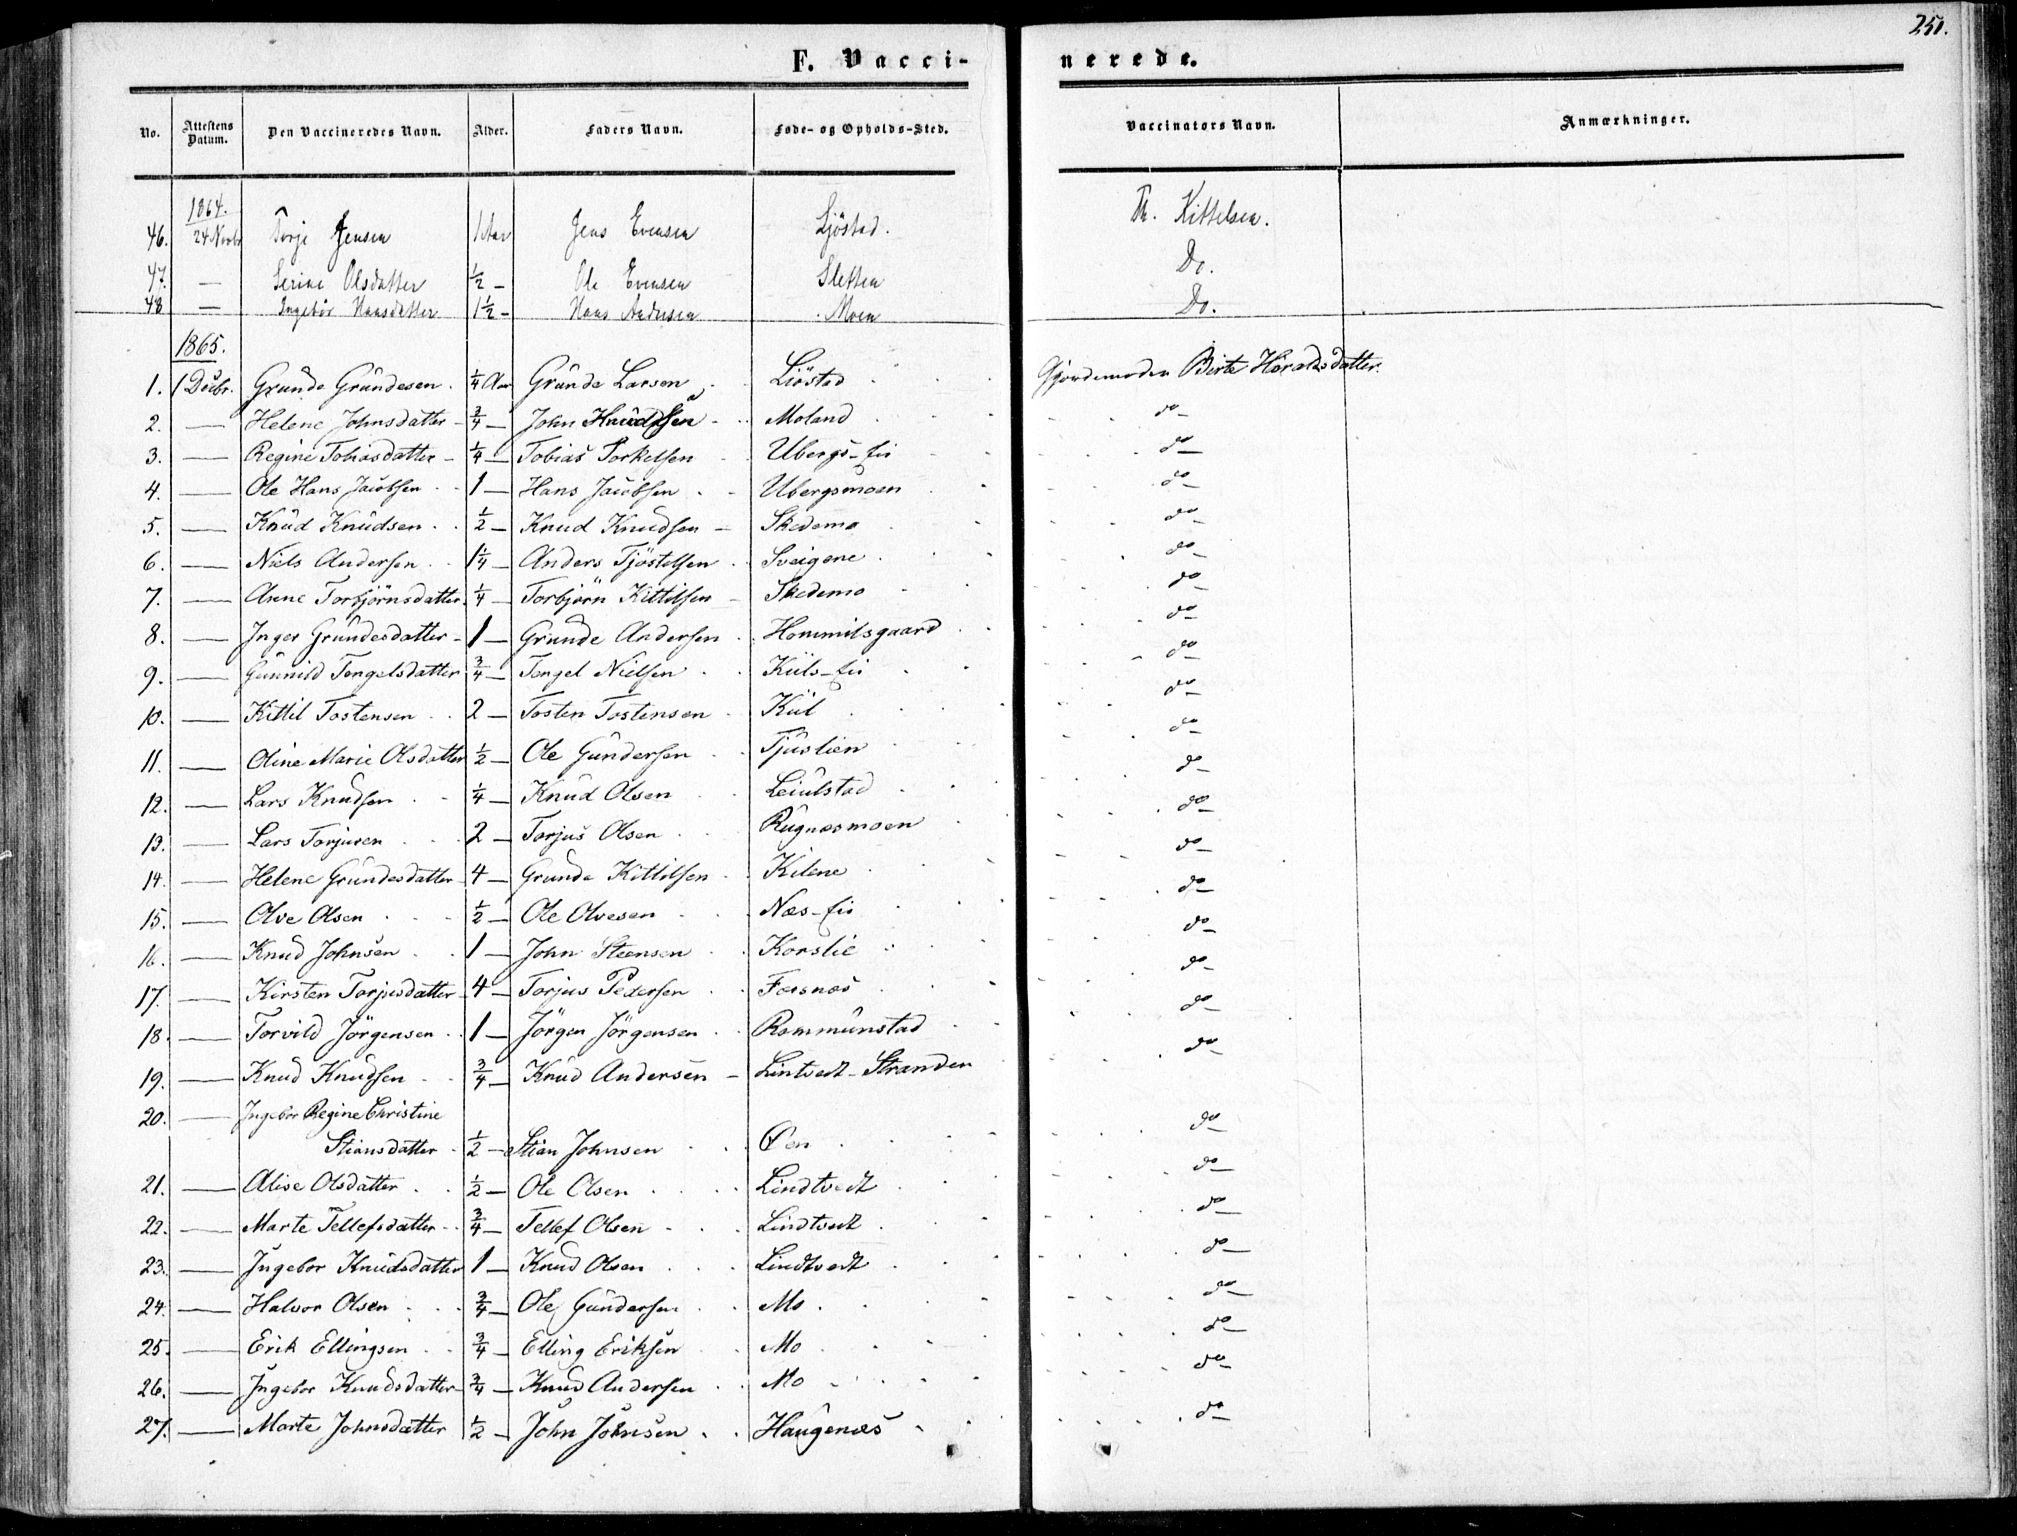 251.
F. Vacci-nerede.
No. Attestens Datum. Den Vaccineredes Navn. Alder. Faders Navn. Føde- og Opholds-Sted. Vaccinators Navn. Anmærkninger.
1864.
46. 24 Novbr Terje Jensen 1 Aar Jens Evensen Ljöstad. Th. Kittelsen.
47. — Serine Olsdatter ½ - Ole Evensen Sletten Do.
48 — Ingebor Hansdatter 1½ - Hans Andersen Moen Do.
1865.
1. 1 Decbr. Grunde Grundesen. ¼ Aar Grunde Larsen Liöstad Gjordemoder Birte Haraldsdatter.
2. — Helene Johnsdatter - ¾ — John Knudsen - Moland do-
3. — Regine Tobiasdatter - ¼ — Tobias Torkelsen Ubergs-Eie do-
4. — Ole Hans Jacobsen 1 — Hans Jacobsen Ubergsmoen do-
5. — Knud Knudsen ½ — Knud Knudsen - Skedemo do-
6. — Niels Andersen 1¼ — Anders Tjöstelsen Sveigene do-
7. — Anne Torbjörnsdatter ¼ — Torbjörn Kittilsen - Skedemo do-
8. — Inger Grundesdatter - 1 — Grunde Andersen Hommilsgaard do-
9. — Gunnild Tengelsdatter ¾ — Tengel Nielsen Kiils-Eie do-
10. — Kittil Tostensen 2 — Tosten Tostensen Kiil do-
11. — Oline Marie Olsdatter ½ — Ole Gundersen Tjuslien do-
12. — Lars Knudsen ¼ — Knud Olsen Leiulstad do-
13. — Lars Torjusen 2 — Torjus Olsen Rugnesmoen do-
14. — Helene Grundesdatter 4 — Grunde Kittilsen Kilene do-
15. — Olve Olsen ½ — Ole Olvesen Næs-Eie do-
16. — Knud Johnsen 1 — John Steensen Korslie do-
17. — Kirsten Torjusdatter 4 — Torjus Pedersen Fæsnes do-
18. — Torvild Jörgensen 1 — Jörgen Jörgensen Rommunstad do-
19. — Knud Knudsen ¾ — Knud Andersen - Lintvedt-Stranden do-
20. — Ingebor Regine Christine
Stiansdatter ½ — Stian Johnsen Øen do-
21. — Alise Olsdatter ½ — Ole Olsen Lindtvedt do-
22. — Marte Tellefsdatter ¾ — Tellef Olsen Lindtvedt do-
23. — Ingebor Knudsdatter 1 — Knud Olsen Lindtvedt do-
24. — Halvor Olsen ¾ — Ole Gundersen Mo do-
25. — Erik Ellingsen ¾ — Elling Eriksen Mo do-
26. — Ingebor Knudsdatter ¾ — Knud Andersen Mo do-
27. — Marte Johnsdatter ½ — John Johnsen Haugenæs do-